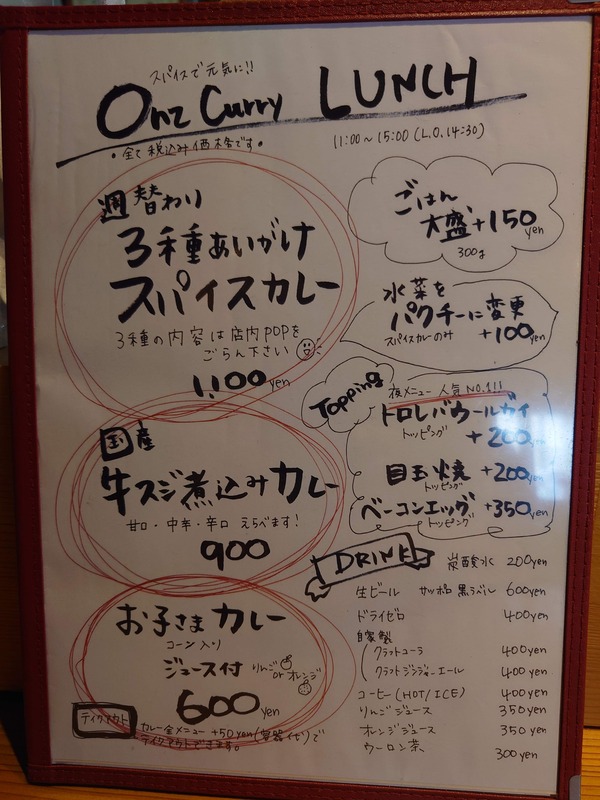 スパイスで元気に!!
Onz Curry LUNCH
11:00～15:00 (L.O.14:30)
・全て税込み価格です・
週替わり
3種あいがけ
スパイスカレー
3種の内容は店内POPを
ごらん下さい
1,100yen
国産
牛スジ煮込みカレー
甘口・中辛・辛口 えらべます!
900
お子さまカレー
コーン入り
ジュース付 りんご or オレンジ
600yen
テイクアウト
カレー全メニュー +50yen(容器代)で
テイクアウトできます。
ごはん
大盛+150yen
300g
水菜を
パクチーに変更
スパイスカレーのみ +100yen
Topping
夜メニュー人気NO.1!!!
トッピング +200yen
目玉焼 +200yen
トッピング
ベーコンエッグ +350yen
トッピング
DRINK
炭酸水 200yen
生ビール サッポロ黒ラベル 600yen
ドライゼロ 400yen
自家製
クラフトコーラ 400yen
クラフトジンジャーエール 400yen
コーヒー(HOT/ICE) 400yen
りんごジュース 350yen
オレンジジュース 350yen
ウーロン茶 300yen